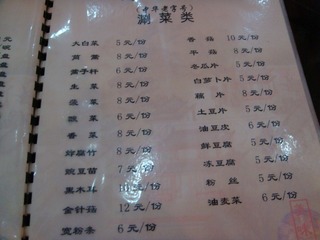 (中华老字号)
涮菜类
大白菜 5元/份
茼蒿 8元/份
蒿子秆 6元/份
生菜 8元/份
菠菜 8元/份
8元/份
香菜 8元/份
炸腐竹 8元/份
豌豆苗 7元/份
黑木耳 元/份
金针菇 12元/份
宽粉条 6元/份
香菇 10元/份
平菇 8元/份
冬瓜片 5元/份
白萝卜片 5元/份
藕片 8元/份
土豆片 5元/份
油豆皮 6元/份
鲜豆腐 5元/份
冻豆腐 5元/份
粉丝 5元/份
油麦菜 6元/份